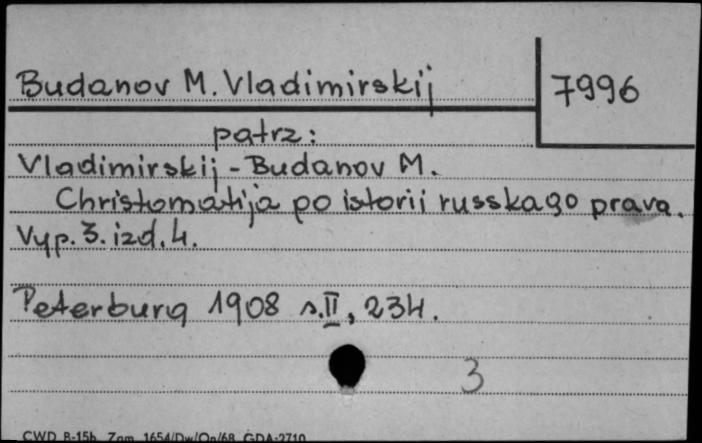 Budanov M. Vladimirskij
7996
patrz:
Vladimirskij - Budanov M.
Christomatija po istorii russkago prava.
Vyp. 3. izd. 4.
Peterburg 1908 s. II, 234.
3
CWD B-15b Zam. 1654/Dw/On/68 GDA-2710